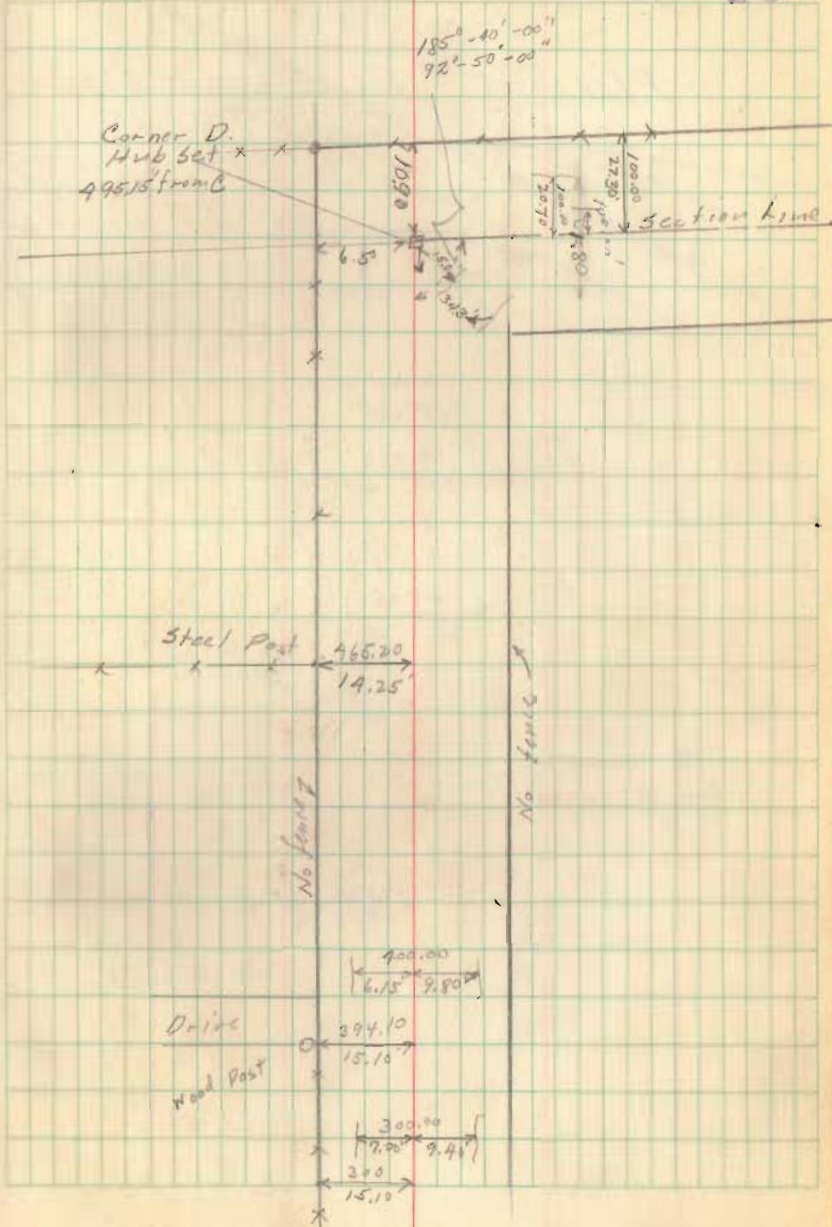 185°-40'-00"
92°-50'-00"
Corner D.
Hub Set
495.15' from C
10.90
100.00
27.30'
100.00
20.70
Section Line
6.5
13.43'
Steel Post
465.20
14.25'
No fence
No fence
400.00
6.15' 9.80'
Drive
394.10
15.10'
Wood Post
300.00
7.00' 9.40'
300
15.10'